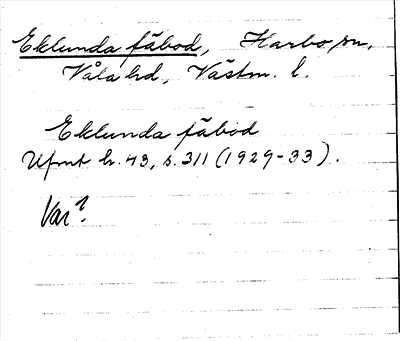 Eklunda fäbod, Harbo sn,
Våla hd, Västm. l.
Eklunda fäbod
Ufmt h. 43, s. 311 (1929-33).
Var?